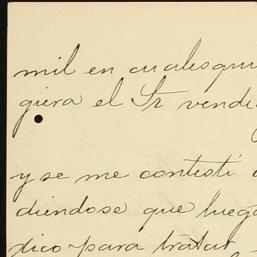 mil en cualesqui
giera el Sr vendi
y se me contestí
diendose que luego
dico para tratar